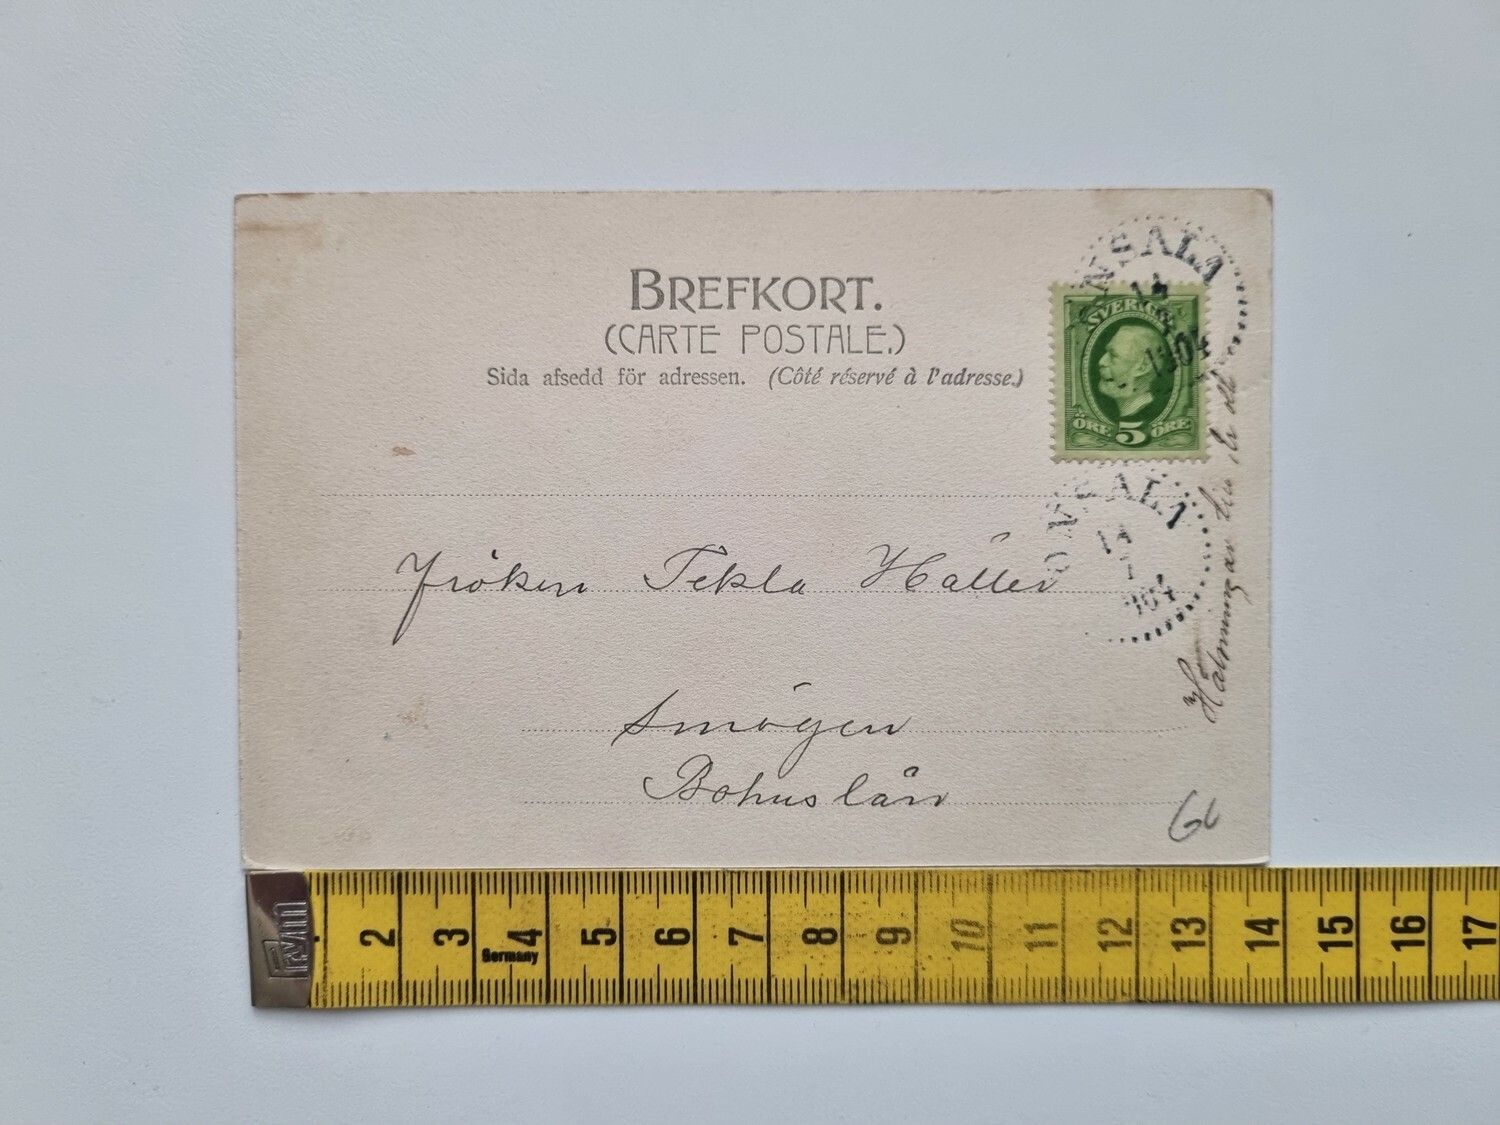 BREFKORT.
(CARTE POSTALE.)
Sida afsedd för adressen. (Côté réservé à l'adresse.)
ONSALA
14
1904
SVERIGE
ÖRE 5 ÖRE
ONSALA
14
7
1904
Fröken Tekla Häller
Smögen
Bohuslän
2 3 4 5 6 7 8 9 10 11 12 13 14 15 16 17
Germany